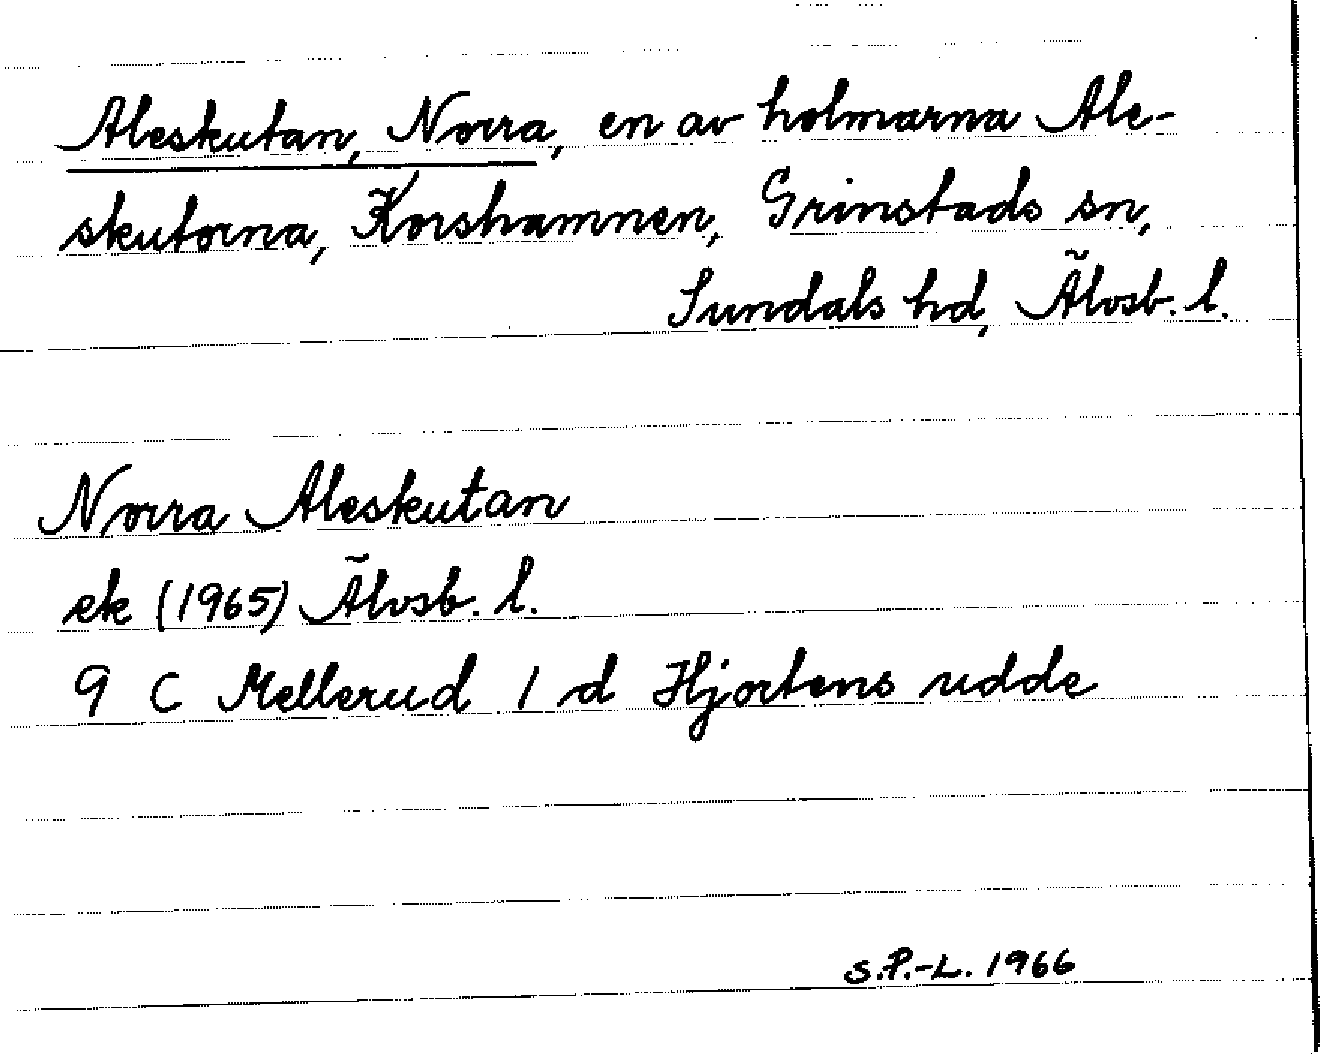 Aleskutan, Norra, en av holmarna Ale-
skutorna, Korshamnen, Grinstads sn,
Sundals hd, Älvsb. l.
Norra Aleskutan
ek (1965) Älvsb. l.
9 C Mellerud 1 d Hjortens udde
S.P.-L. 1966